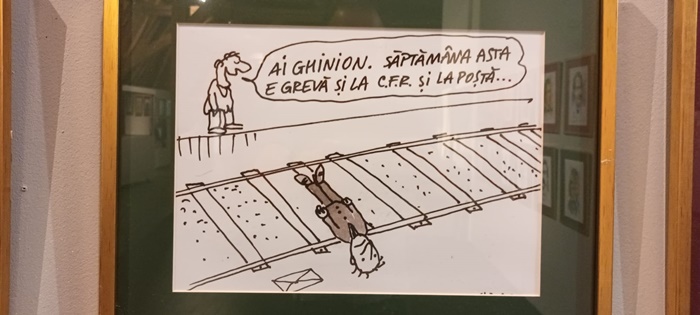 AI GHINION. SĂPTĂMÂNA ASTA
E GREVĂ ȘI LA C.F.R. ȘI LA POȘTĂ...